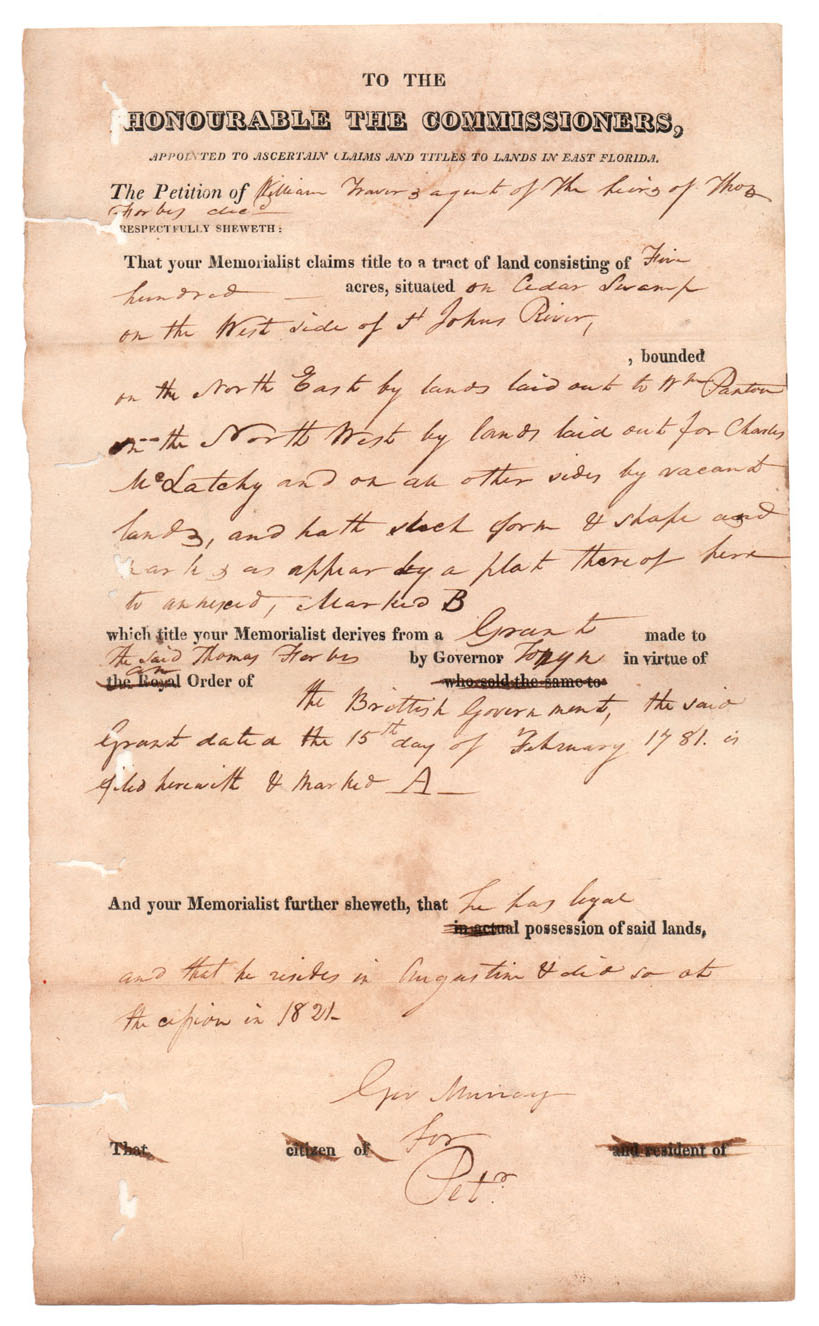 TO THE
HONOURABLE THE COMMISSIONERS,
APPOINTED TO ASCERTAIN CLAIMS AND TITLES TO LANDS IN EAST FLORIDA.
The Petition of William Travers agent of the heirs of Thos
Forbes decd
RESPECTFULLY SHEWETH:
That your Memorialist claims title to a tract of land consisting of Five
hundred — acres, situated on Cedar Swamp
on the West side of St Johns River,
, bounded
on the North East by lands laid out to Wm Panton
on the North West by lands laid out for Charles
McLatchy and on all other sides by vacant
lands, and hath such form & shape and
marks as appear by a plat thereof here
to annexed, Marked B
which title your Memorialist derives from a Grant made to
the said Thomas Forbes by Governor Tonyn in virtue of
an
the Royal Order of who sold the same to
the Brittish Government, the said
Grant dated the 15th day of February 1781. is
filed herewith & Marked —A—
And your Memorialist further sheweth, that he has legal
in actual possession of said lands,
and that he resides in Augustine & did so at
the cession in 1821—
Geo Murray
That, citizen of for and resident of
Petr